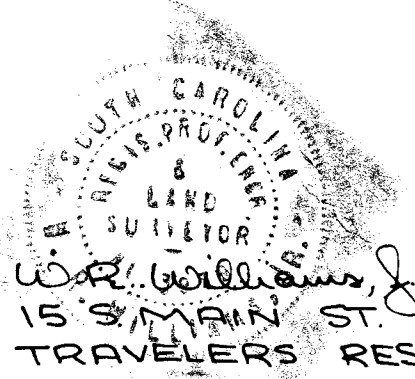 SOUTH CAROLINA
REGIS. PROF. ENGR.
&
LAND
SURVEYOR
W. R. Williams, J
15 S. MAIN ST.
TRAVELERS RES